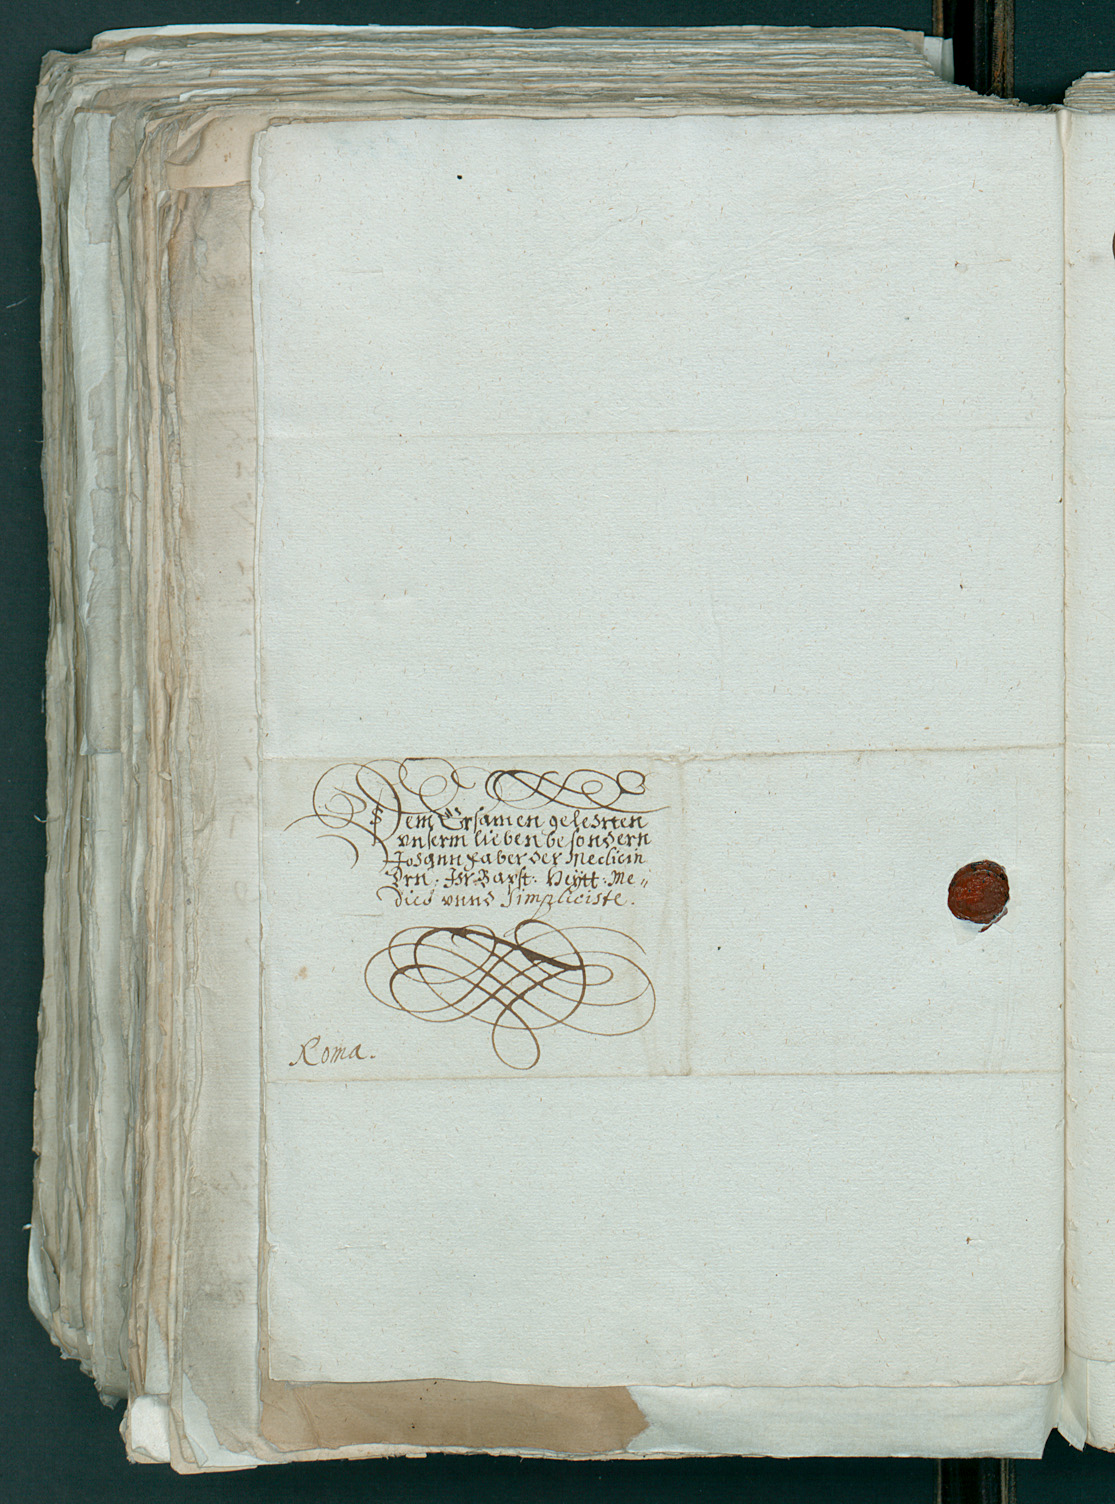 Dem Ersamen gelehrten
vnserm lieben besondern
Johann Faber der Medicin
Drn. Jhr Bapst: Heyltt: Me-,,
dico vnnd Simpliciste.
Roma.